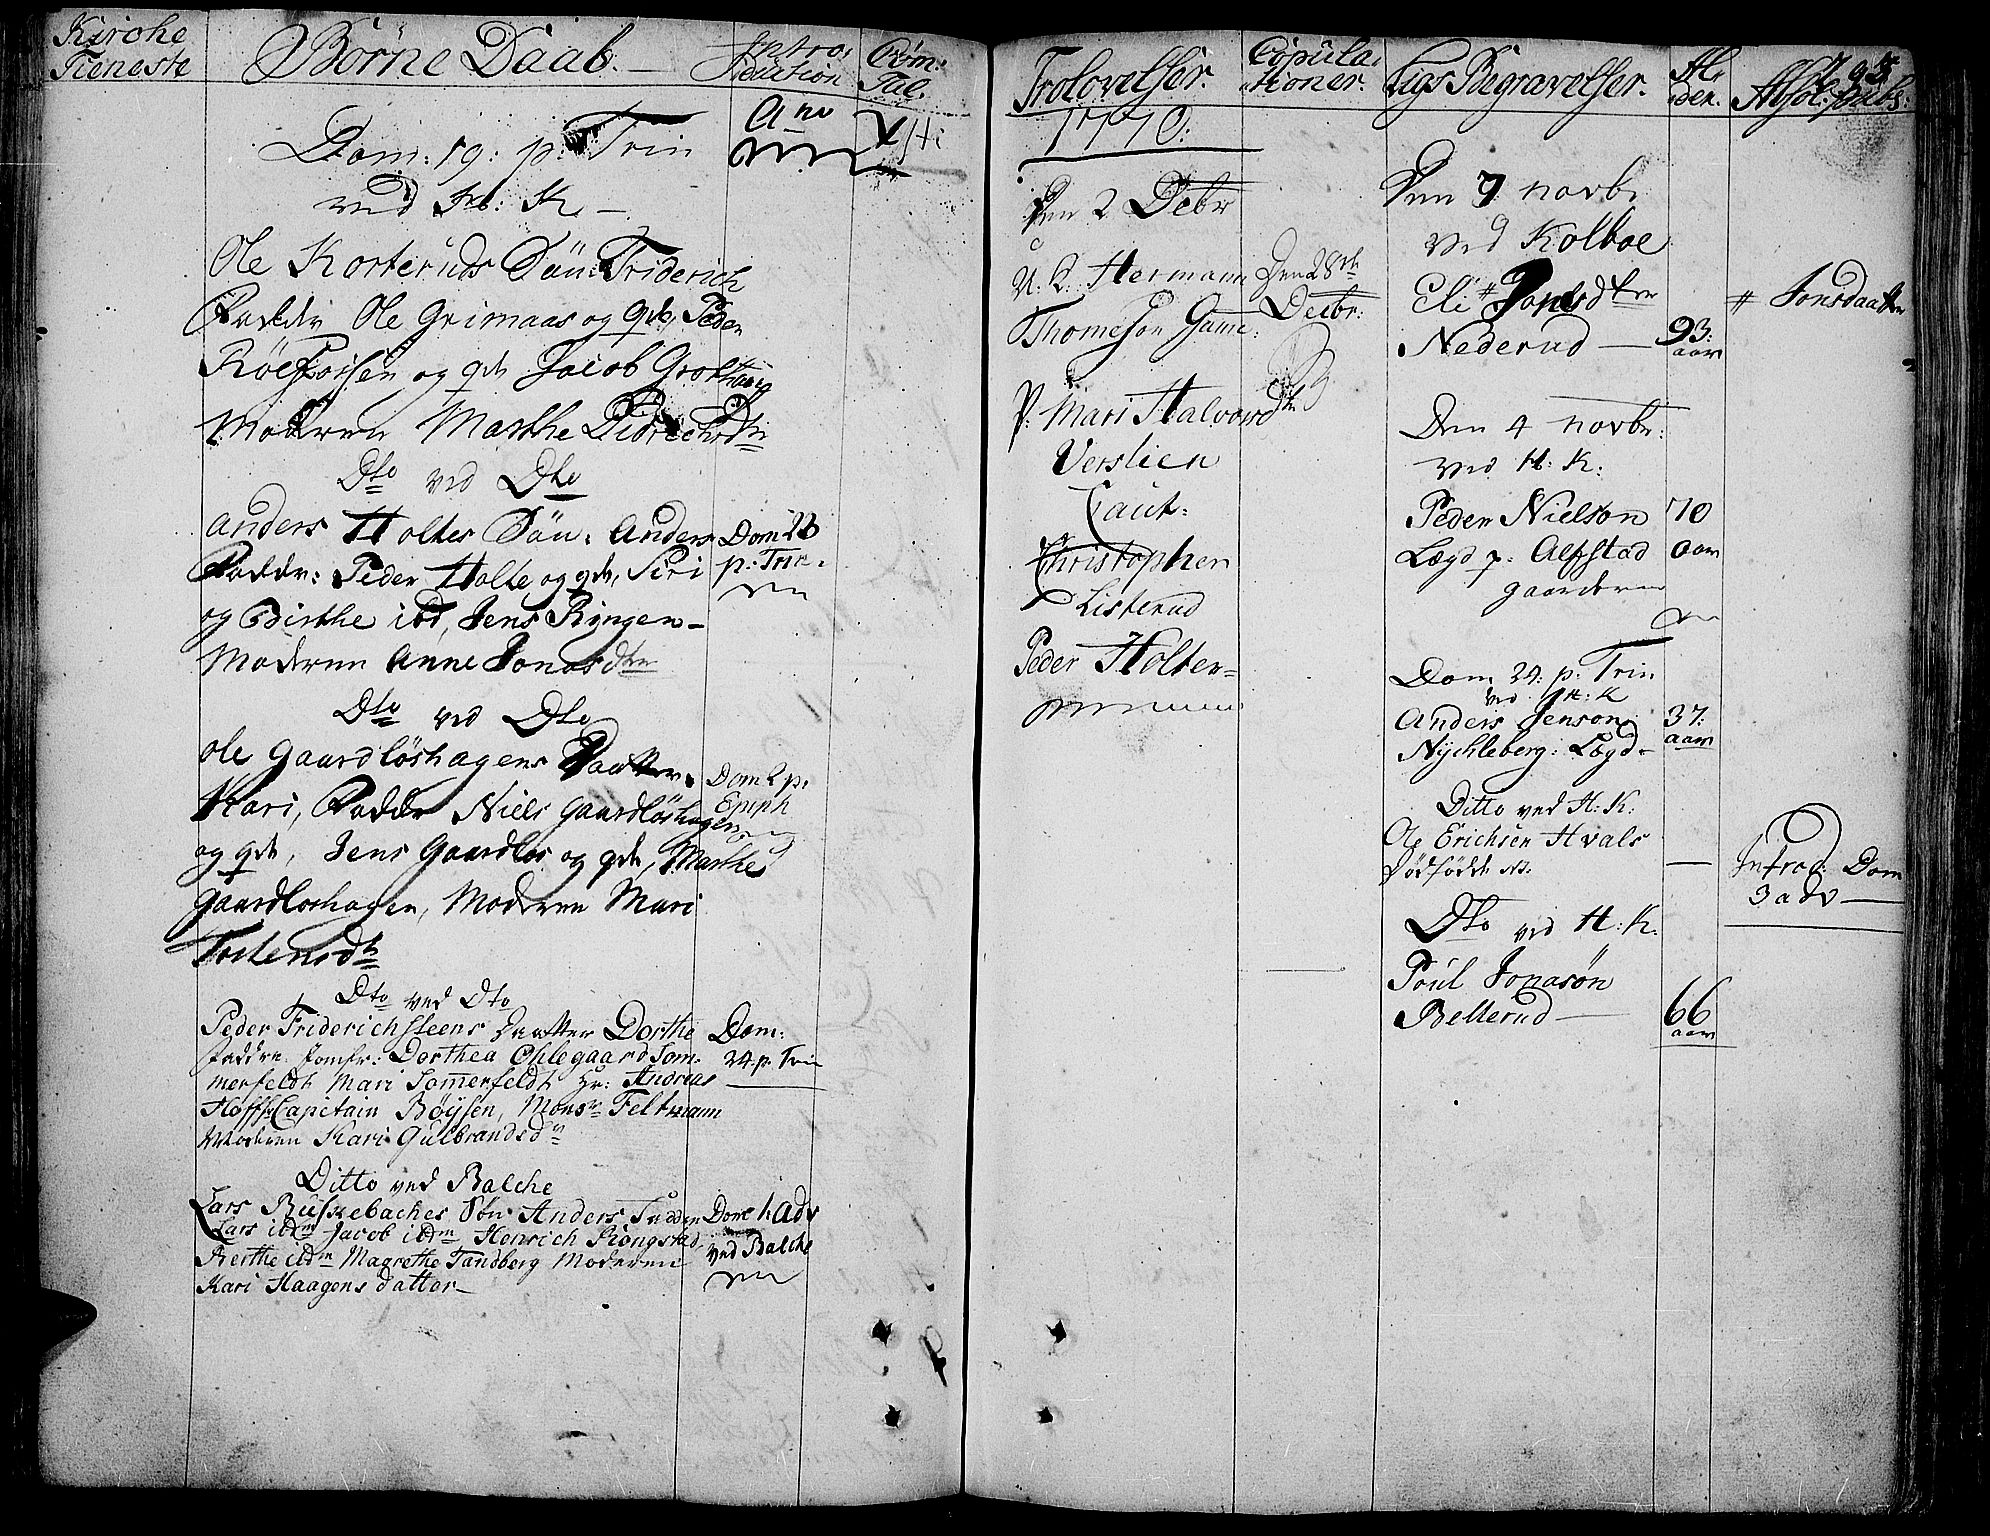 Kirche
Tieneste
Börne Daab.
Intro-
duction
Com:
Tal.
Trolovelser.
Copula-
tioner.
Ligs Begravelser.
Al-
der.
Absol: publ:
Ano
1770:
Dom: 19: p: Trin
ved H: K. —
Ole Korteruds Sön: Friderich
Faddr Ole Grimaas og qde, Peder
og qde Jacob
Moderen Marthe
Dto ved Dto
Anders Holtes Sön: Anders
Faddr: Peder Holte og qde, Siri
og Birthe ibd, Jens Ringen-
Moderen Anne Jonasdtr
Dom 23
p: Trin.
Dto ved Dto
Ole Gaardlöshagens Daatter
Kari, Faddr Niels Gaardlöshagen
og qde, Jens Gaardlos og qde, Marthe
Gaardloshagen, Moderen Mari
Tostensdtr
Dom 2 p.
Epiph
Dto ved Dto
Peder Friderichsteens Daatter Dorthe
Faddre. Jomfr: Dorthea Ohlegaard Som-
merfeldt Mari Somerfeldt Hr: Andreas
Hoff, Capitain Böysen, Monsr Feltmann
Moderen Kari Gulbrandsdr
Dom:
24. p. Trin
Ditto ved Balche
Lars Buskebaches Sön Anders Fadder
Lars ibdm Jacob ibdm Henrich Ringstad
Berthe ibdm Magrethe Tandberg Moderen
Kari Haagens datter-
Dom 1. Adv
ved Balche
Den 2 Debr
U. K: Hermann
Thomeson Game:
P. Mari Halvorsdtr
Verslien
Caut:
Christopher
Listerud
Peder Holter-
Den 28de
Decbr:
Den 7 Novbr
ved Kolboe
Eli # Jonsdtr
Nederud —
93:
aar
# Jonsdaatter
Den 4 Novbr:
ved H: K:
Peder Nielson
Lægd p: Alfstad
gaarderne
70
aar
Dom 24: p: Trin
ved H: K
Anders Jenson
Nychleberg: Lægd-
37:
aar
Ditto ved H: K:
Ole Erichsen Hvals
Dödfödde
—
Introd: Dom
3 adv —
Dto ved H: K.
Poul Jonasön
Bellerud —
66
aar